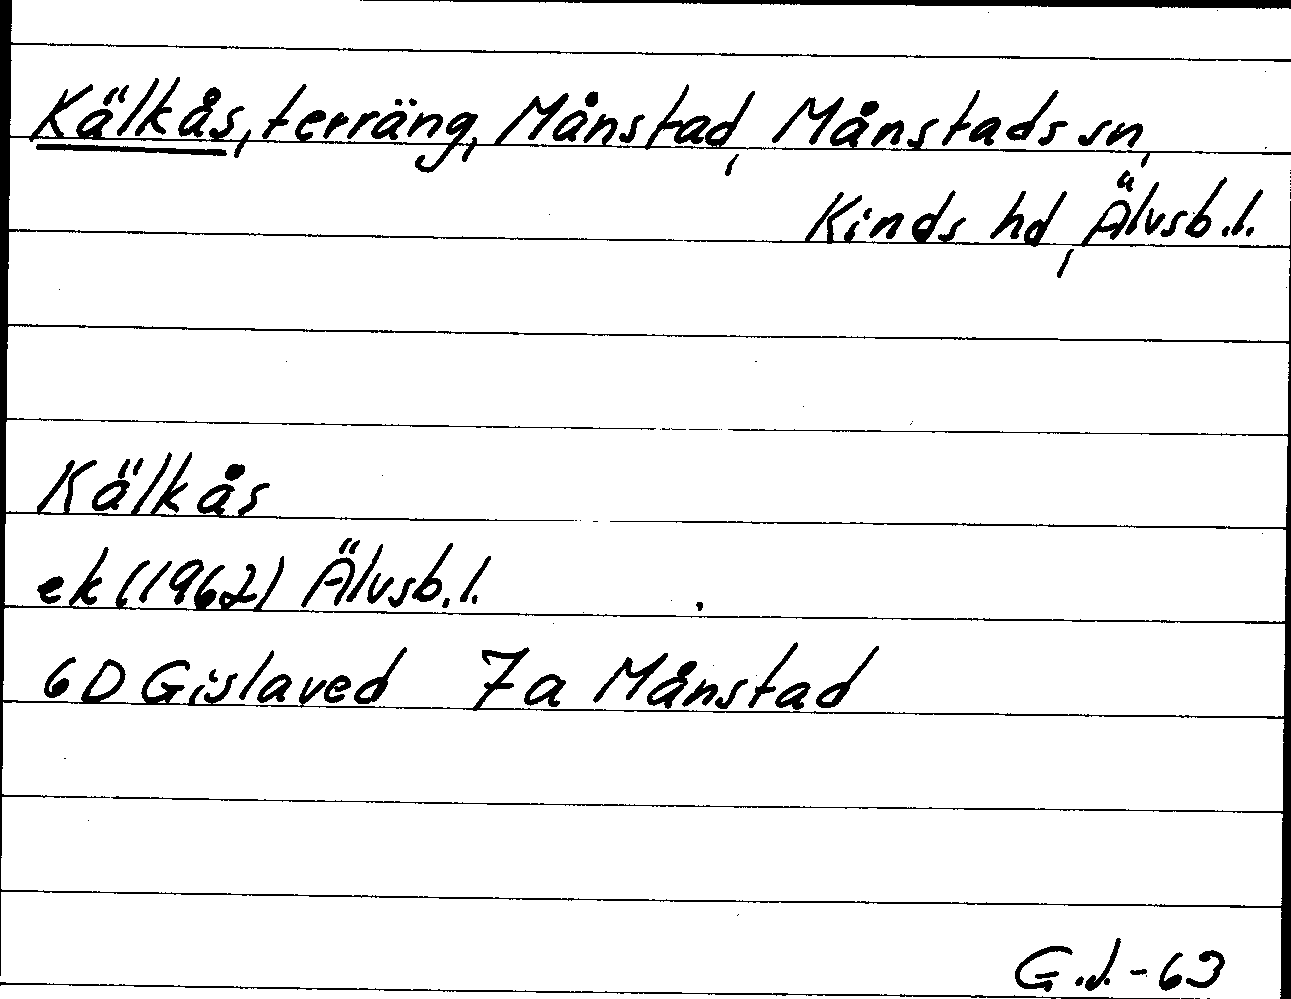 Kälkås, terräng, Månstad, Månstads sn,
Kinds hd, Älvsb.l.
Kälkås
ek (1962) Älvsb.l.
6D Gislaved 7a Månstad
G.J.-63